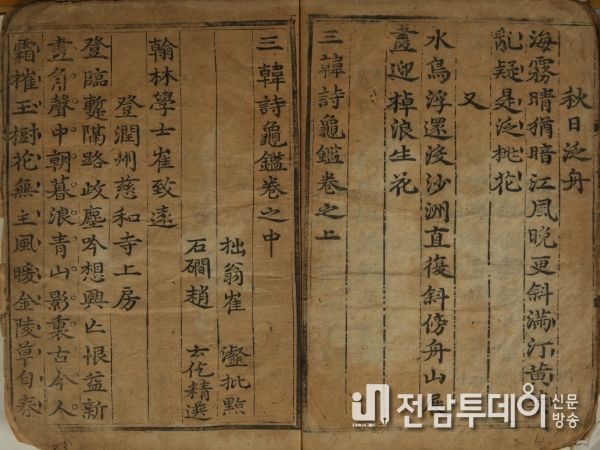 秋日泛舟
海霧晴猶暗江風晚更斜滿汀黃
亂疑是泛桃花
又
水鳥浮還沒沙洲直復斜傍舟山展
畫迎棹浪生花
三韓詩龜鑑卷之上
三韓詩龜鑑卷之中
拙翁崔 瀣批點
石磵趙 云仡精選
翰林學士崔致遠
登潤州慈和寺上房
登臨蹔隔路歧塵吟想興亡恨益新
畫角聲中朝暮浪青山影裏古今人
霜摧玉樹花無主風暖金陵草自春
전남투데이 신문
방송